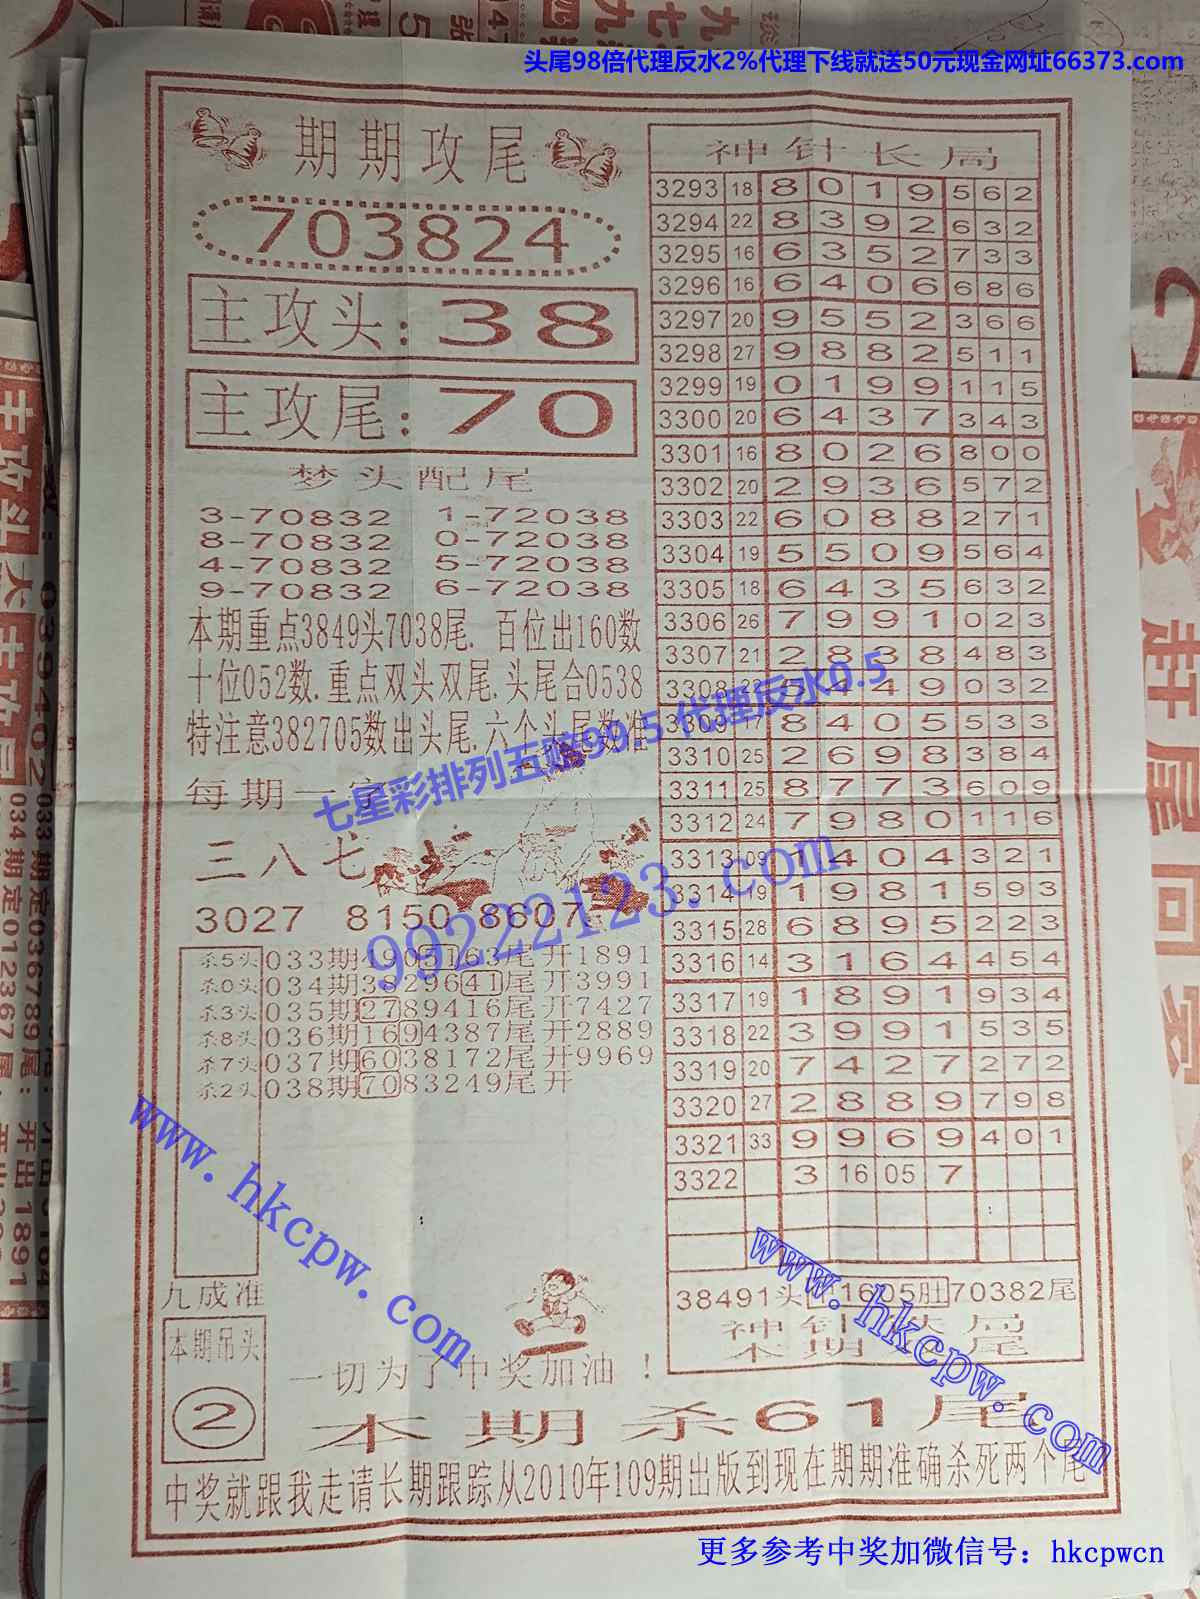 头尾98倍代理反水2%代理下线就送50元现金网址66373.com
期期攻尾
703824
主攻头:38
主攻尾:70
梦头配尾
3-70832 1-72038
8-70832 0-72038
4-70832 5-72038
9-70832 6-72038
本期重点3849头7038尾.百位出160数
十位052数.重点双头双尾.头尾合0538
特注意382705数出头尾.六个头尾数准
每期一
三八七
3027 8150 8607
杀5头 033期 尾开1891
杀0头 034期3829641尾开3991
杀3头 035期2789416尾开7427
杀8头 036期1694387尾开2889
杀7头 037期6038172尾开9969
杀2头 038期7083249尾开
九成准
本期吊头
②
一切为了中奖加油!
神针长局
3293 18 8 0 1 9 5 6 2
3294 22 8 3 9 2 6 3 2
3295 16 6 3 5 2 7 3 3
3296 16 6 4 0 6 6 8 6
3297 20 9 5 5 2 3 6 6
3298 27 9 8 8 2 5 1 1
3299 19 0 1 9 9 1 1 5
3300 20 6 4 3 7 3 4 3
3301 16 8 0 2 6 8 0 0
3302 20 2 9 3 6 5 7 2
3303 22 6 0 8 8 2 7 1
3304 19 5 5 0 9 5 6 4
3305 18 6 4 3 5 6 3 2
3306 26 7 9 9 1 0 2 3
3307 21 2 8 3 8 4 8 3
3308 4 4 9 0 3 2
3309 17 8 4 0 5 5 3 3
3310 25 2 6 9 8 3 8 4
3311 25 8 7 7 3 6 0 9
3312 24 7 9 8 0 1 1 6
3313 09 1 4 0 4 3 2 1
3314 19 1 9 8 1 5 9 3
3315 28 6 8 9 5 2 2 3
3316 14 3 1 6 4 4 5 4
3317 19 1 8 9 1 9 3 4
3318 22 3 9 9 1 5 3 5
3319 20 7 4 2 7 2 7 2
3320 27 2 8 8 9 7 9 8
3321 33 9 9 6 9 4 0 1
3322 3 16 05 7
38491头 1605肚70382尾
神针 局
本期 尾
本期杀61尾
中奖就跟我走请长期跟踪从2010年109期出版到现在期期准确杀死两个尾
七星彩排列五赔99.5代理反水0.5
99222123.com
www.hkcpw.com
www.hkcpw.com
更多参考中奖加微信号：hkcpwcn